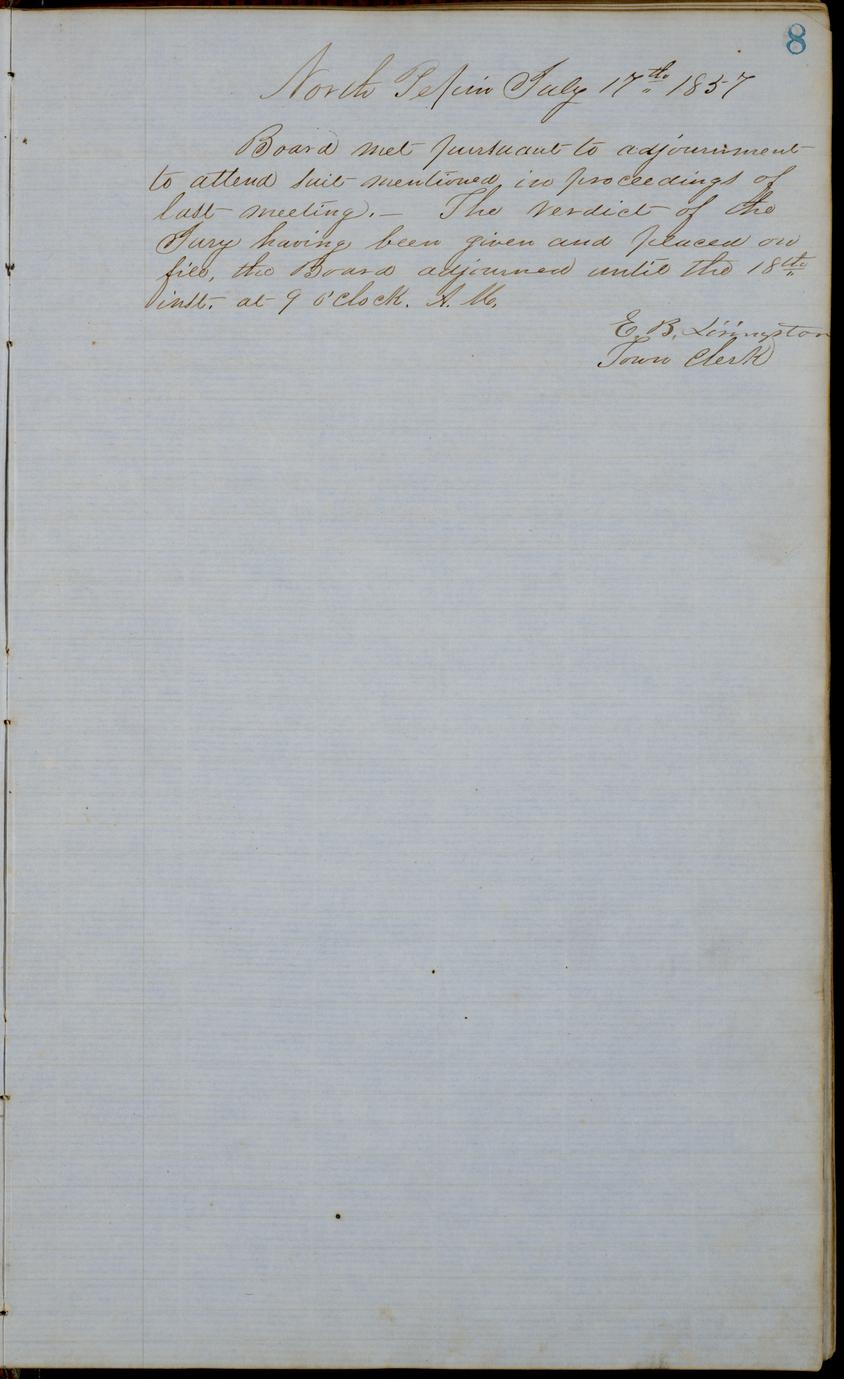 8
North Pepin July 17th 1857
Board met pursuant to adjournment
to attend suit mentioned in proceedings of
last meeting. — The verdict of the
Jury having been given and placed on
file, the Board adjourned until the 18th
inst. at 9 o'clock. A.M.
E. B. Livingston
Town Clerk